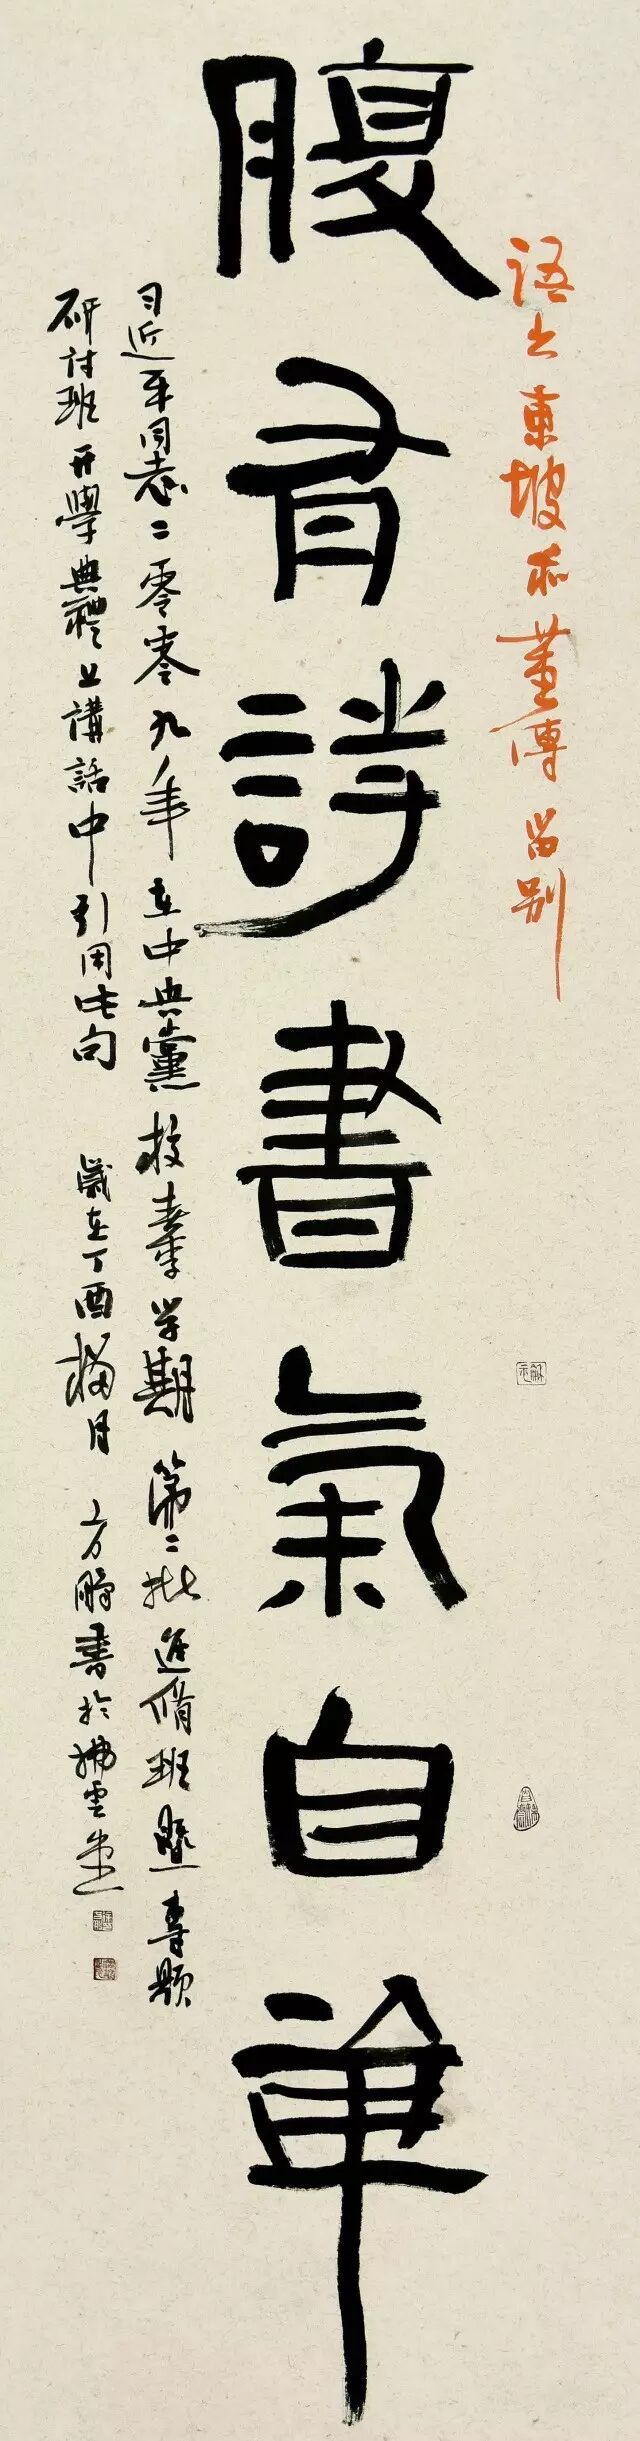 語出東坡和董傳留别
腹有詩書氣自華
习近平同志二零零九年在中央黨校春季学期第二批進脩班暨專題
研討班開學典禮上講話中引用此句 歲在丁酉榴月 方書於拂雲堂